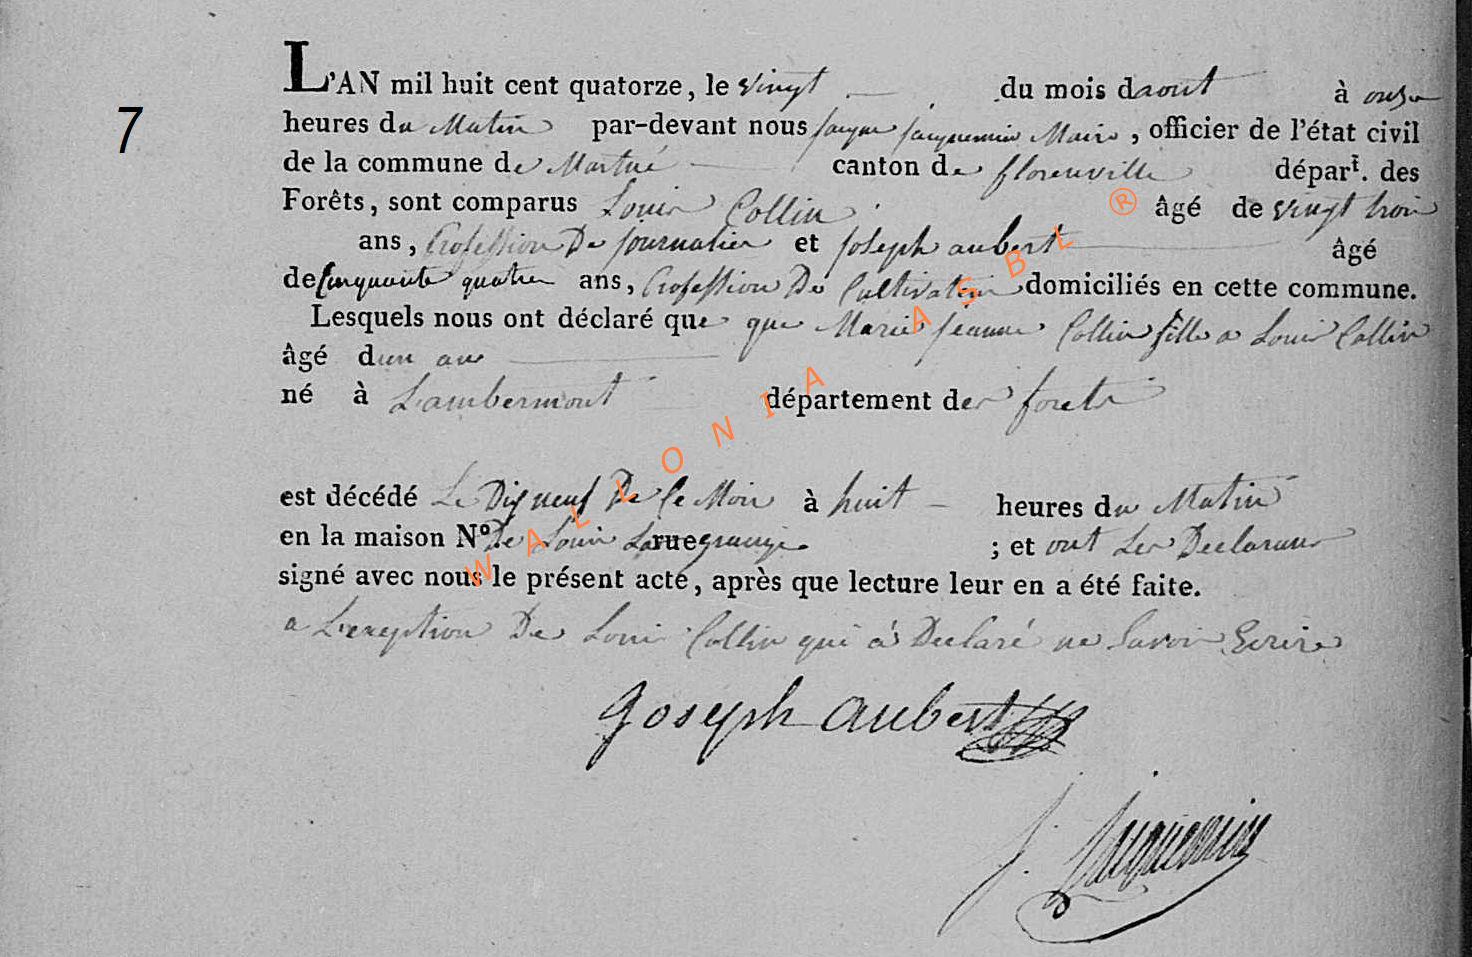 7
L'AN mil huit cent quatorze, le vingt du mois daout à onze
heures du Matin par-devant nous jacque jacquemin Maire, officier de l'état civil
de la commune de Martué canton de florenville départ. des
Forêts, sont comparus Louis Collin âgé de vingt trois
ans, Profession De journalier et joseph aubert âgé
de Cinquante quatre ans, Profession De Cultivateur domiciliés en cette commune.
Lesquels nous ont déclaré que que Marie jeanne Collin fille a Louis Collin
âgé dun an
né à Lambermont département des forets
est décédé Le Dix neuf De Ce Mois à huit heures du Matin
en la maison N° De Louis rue ; et ont Les Declarans
signé avec nous le présent acte, après que lecture leur en a été faite.
a L'exeption De Louis Collin qui á Declaré ne Savoir Ecrire
joseph aubert
J. Jacquemin
WALLONIA ASBL ®